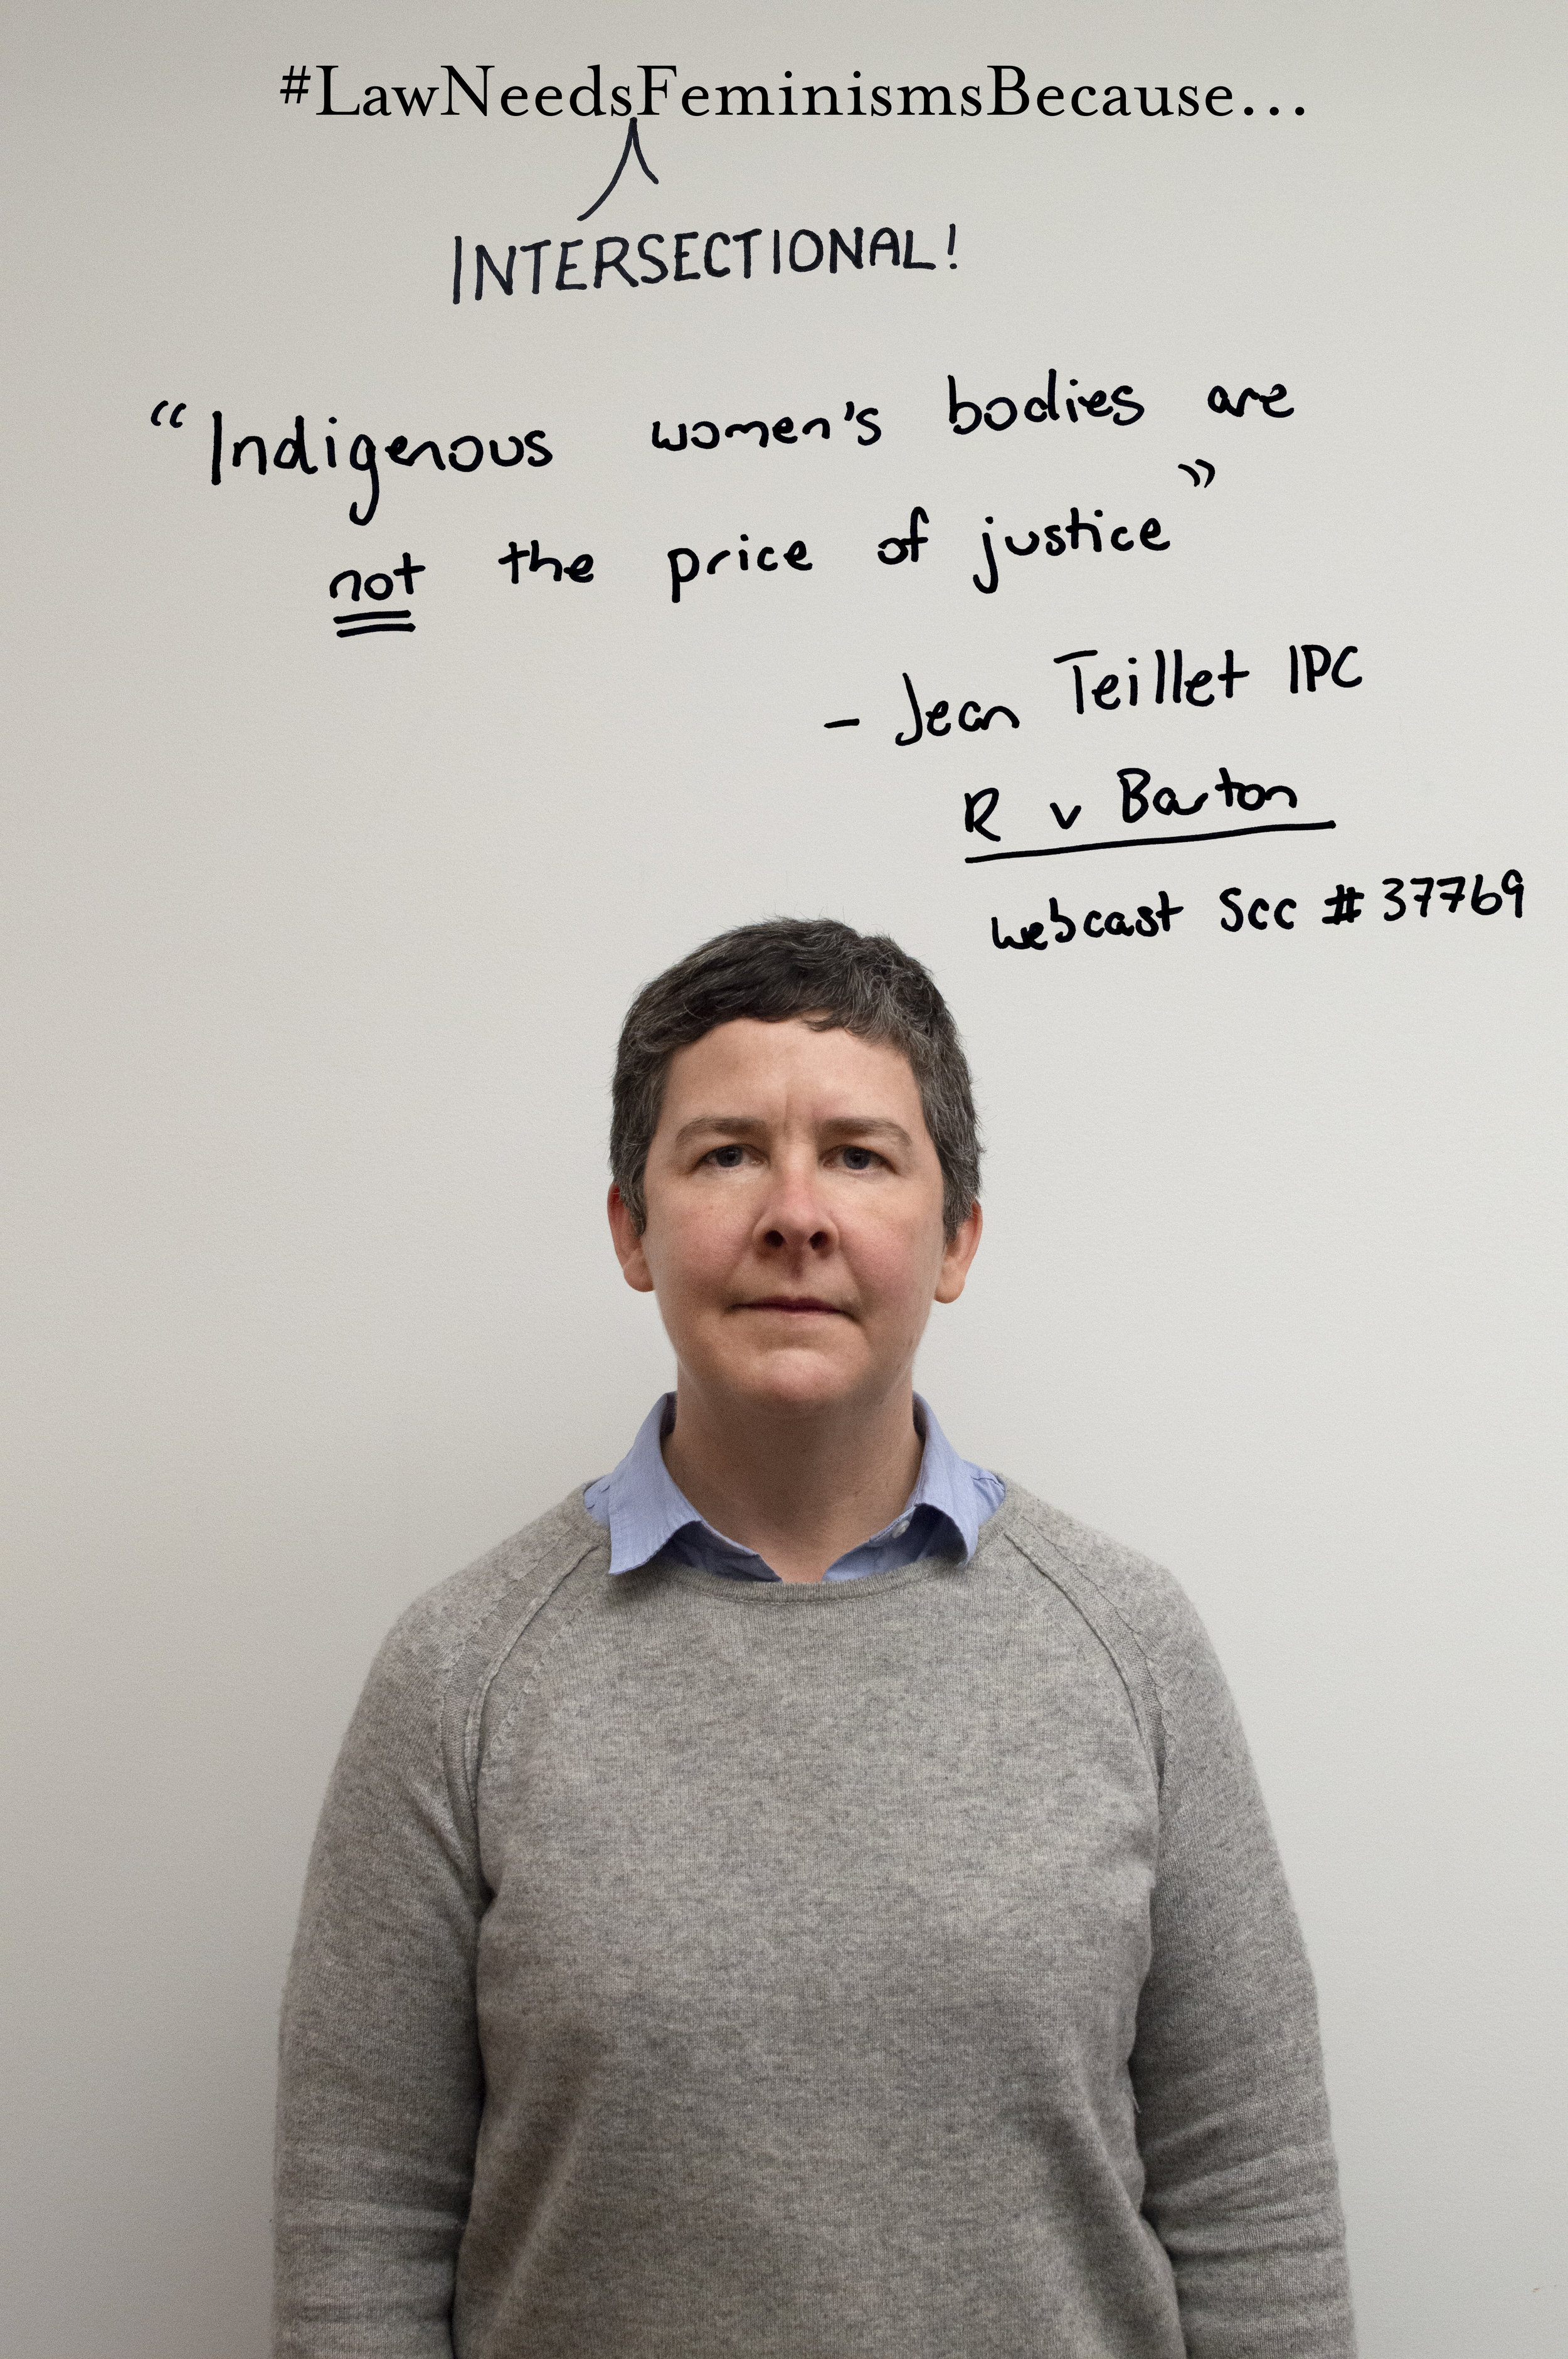 #LawNeedsFeminismsBecause...
INTERSECTIONAL!
“Indigenous women's bodies are
not the price of justice”
- Jean Teillet IPC
R v Barton
webcast SCC # 37769